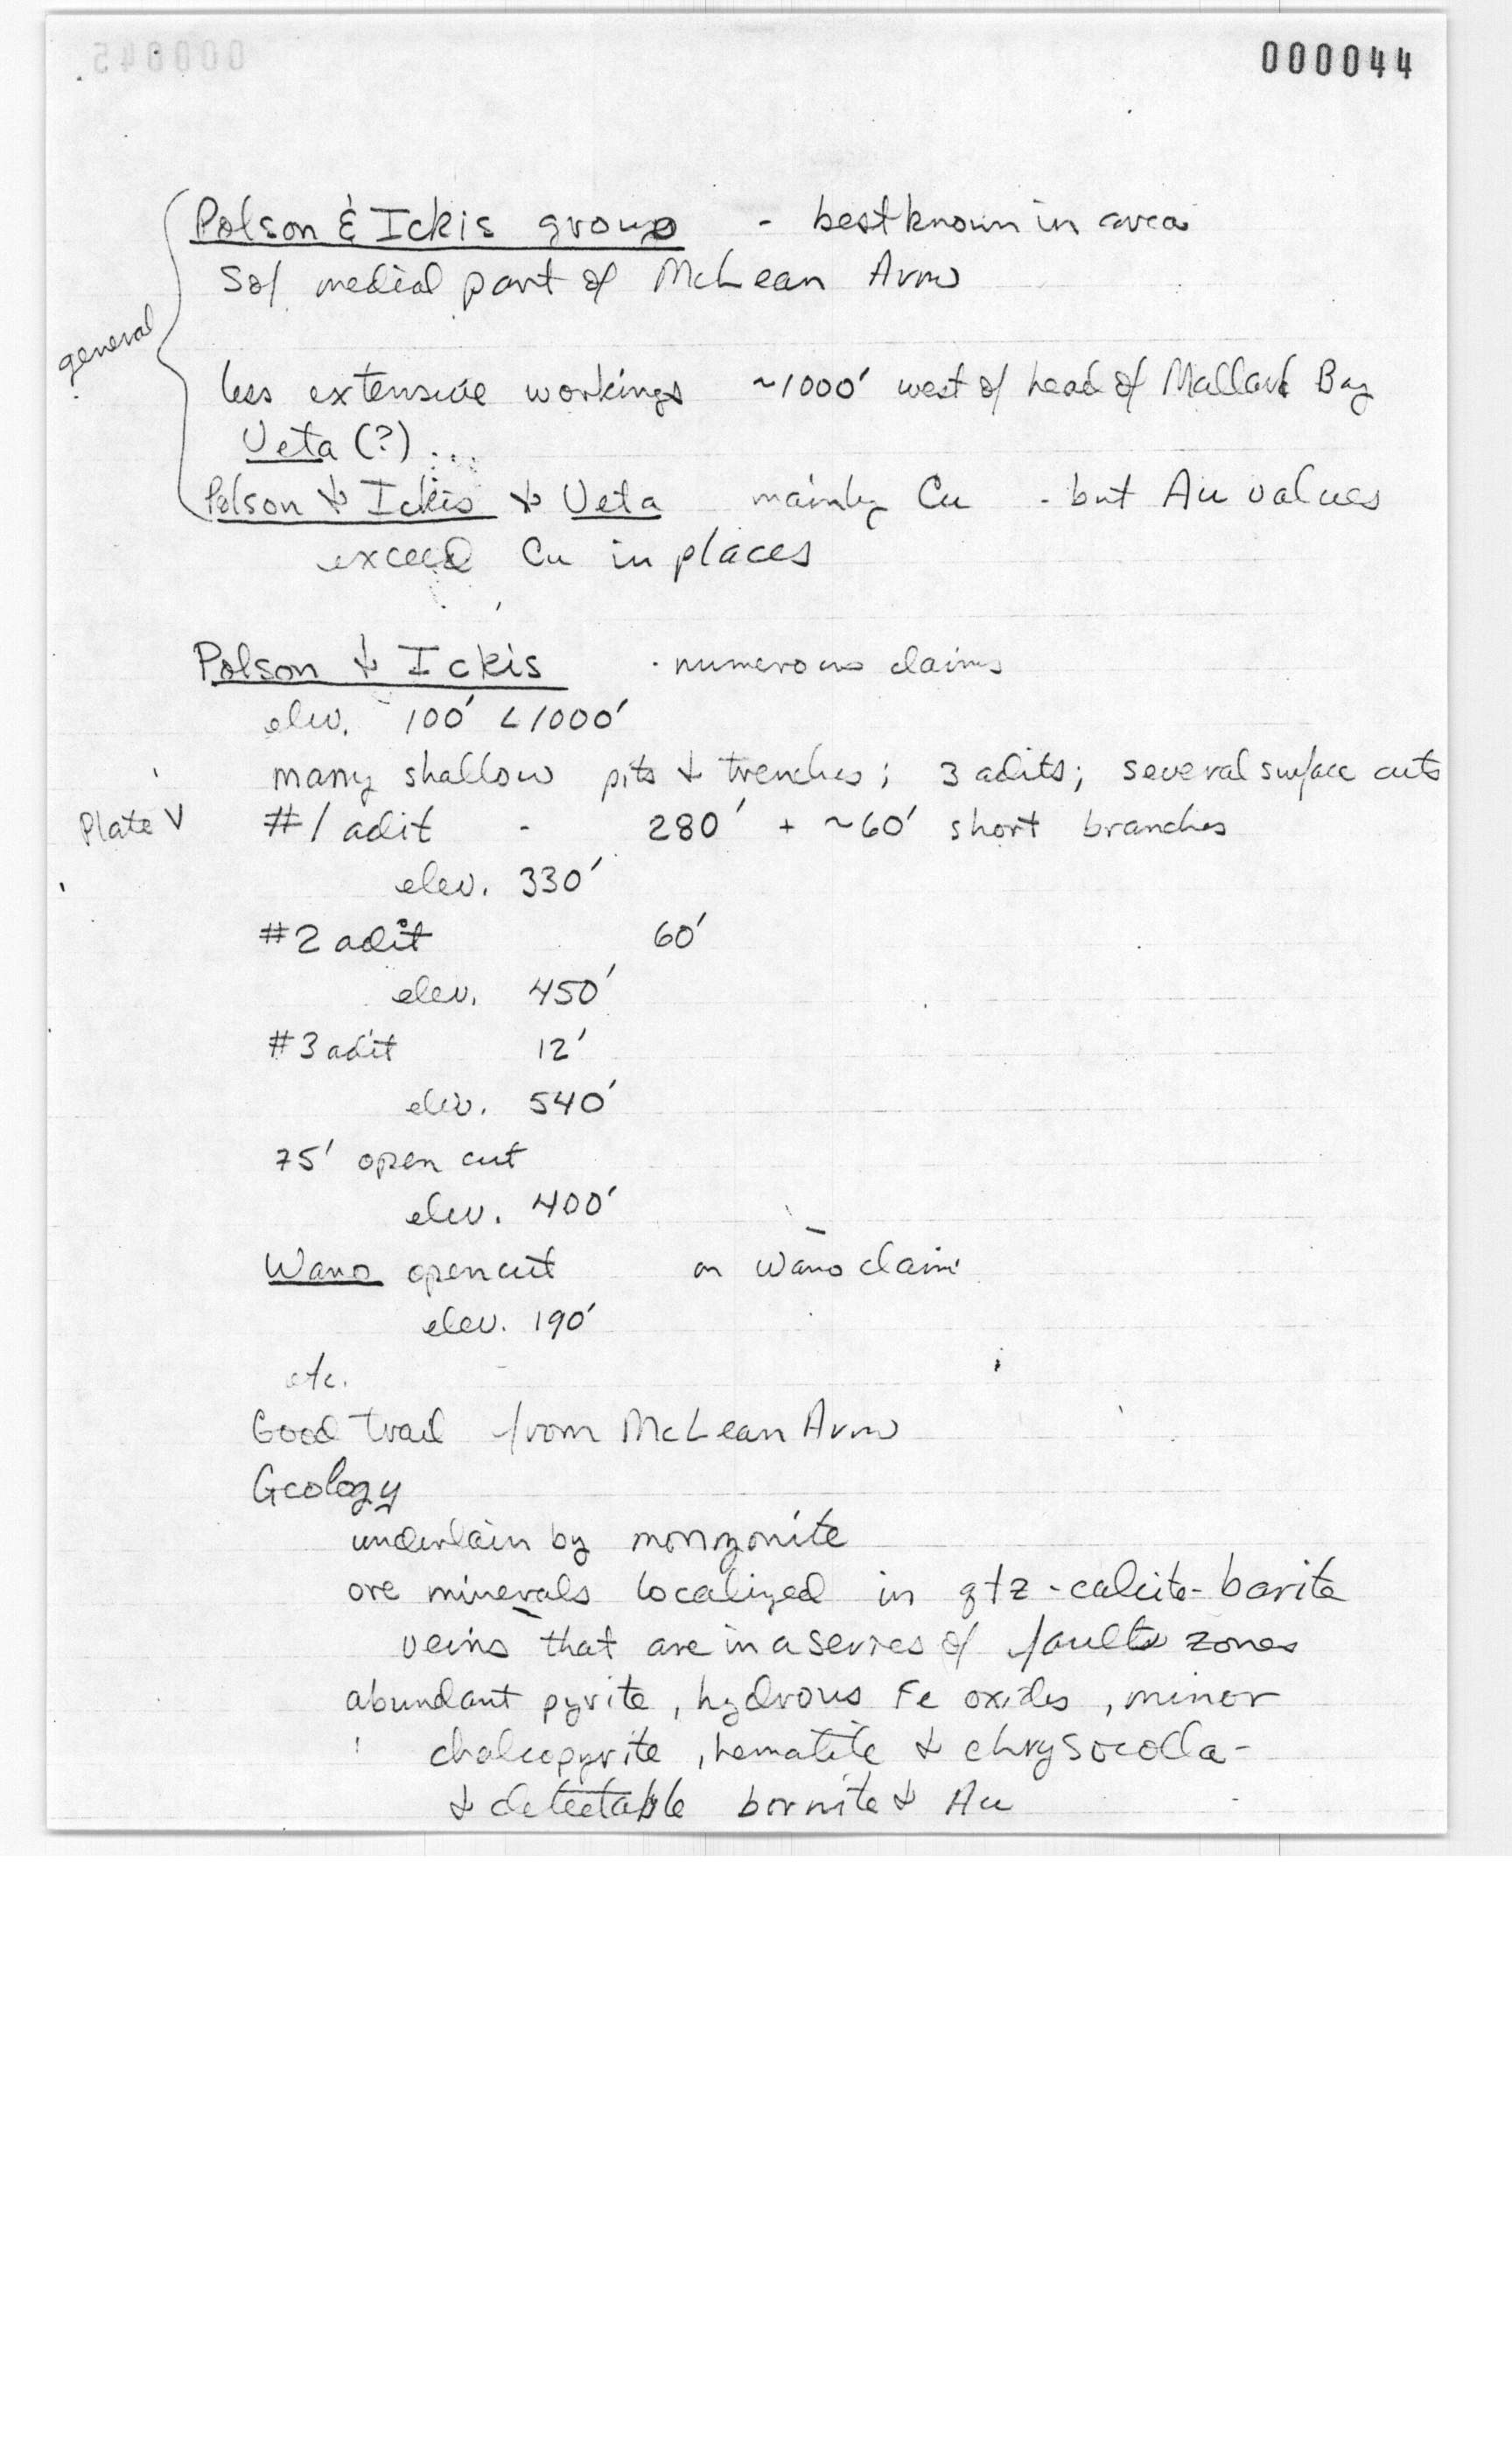 000044
Polson & Ickis group - best known in area
S of medial part of McLean Arm
general
less extensive workings ~1000' west of head of Mallard Bay
Veta (?) ...
Polson & Ickis & Veta mainly Cu - but Au values
exceed Cu in places
Polson & Ickis - numerous claims
elev. 100' < 1000'
many shallow pits & trenches; 3 adits; several surface cuts
Plate V #1 adit - 280' + ~60' short branches
elev. 330'
#2 adit 60'
elev. 450'
#3 adit 12'
elev. 540'
75' open cut
elev. 400'
Wano open cut on Wano claim
elev. 190'
etc.
Good trail from McLean Arm
Geology
underlain by monzonite
ore minerals localized in qtz-calcite-barite
veins that are in a series of fault zones
abundant pyrite, hydrous Fe oxides, minor
chalcopyrite, hematite & chrysocolla -
& detectable bornite & Au